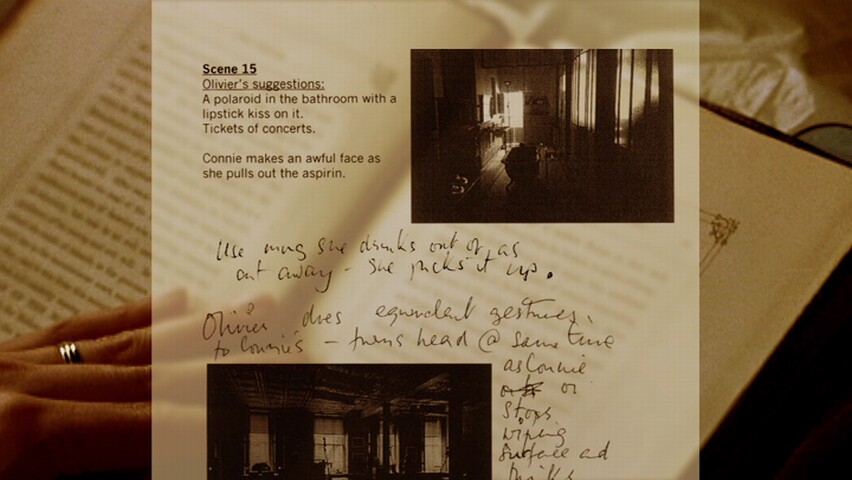 Scene 15
Olivier's suggestions:
A polaroid in the bathroom with a
lipstick kiss on it.
Tickets of concerts.
Connie makes an awful face as
she pulls out the aspirin.
Use mug she drinks out of, as
cut away - she picks it up.
Olivier does equivalent gestures,
to Connie's - turns head @ same time
as Connie
or
stops
wiping
surface ad